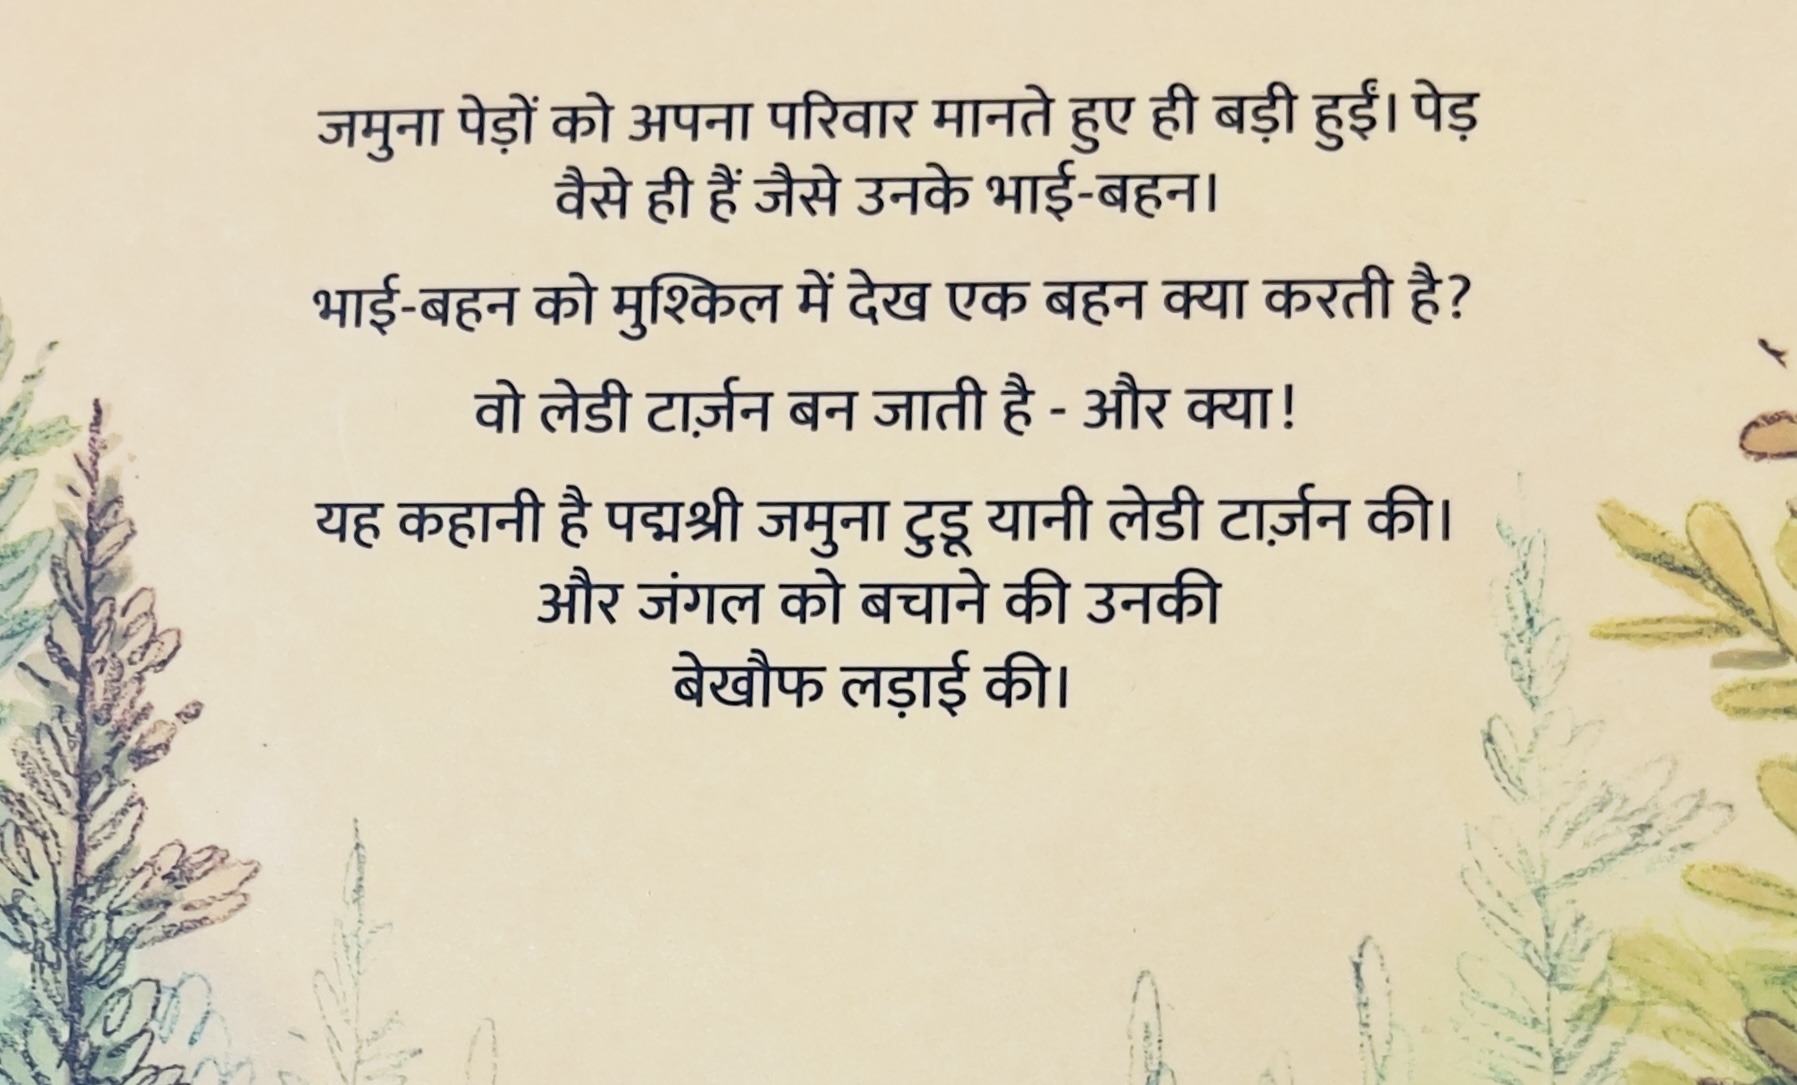 जमुना पेड़ों को अपना परिवार मानते हुए ही बड़ी हुईं। पेड़
वैसे ही हैं जैसे उनके भाई-बहन।
भाई-बहन को मुश्किल में देख एक बहन क्या करती है?
वो लेडी टार्ज़न बन जाती है - और क्या!
यह कहानी है पद्मश्री जमुना टुडू यानी लेडी टार्ज़न की।
और जंगल को बचाने की उनकी
बेखौफ लड़ाई की।